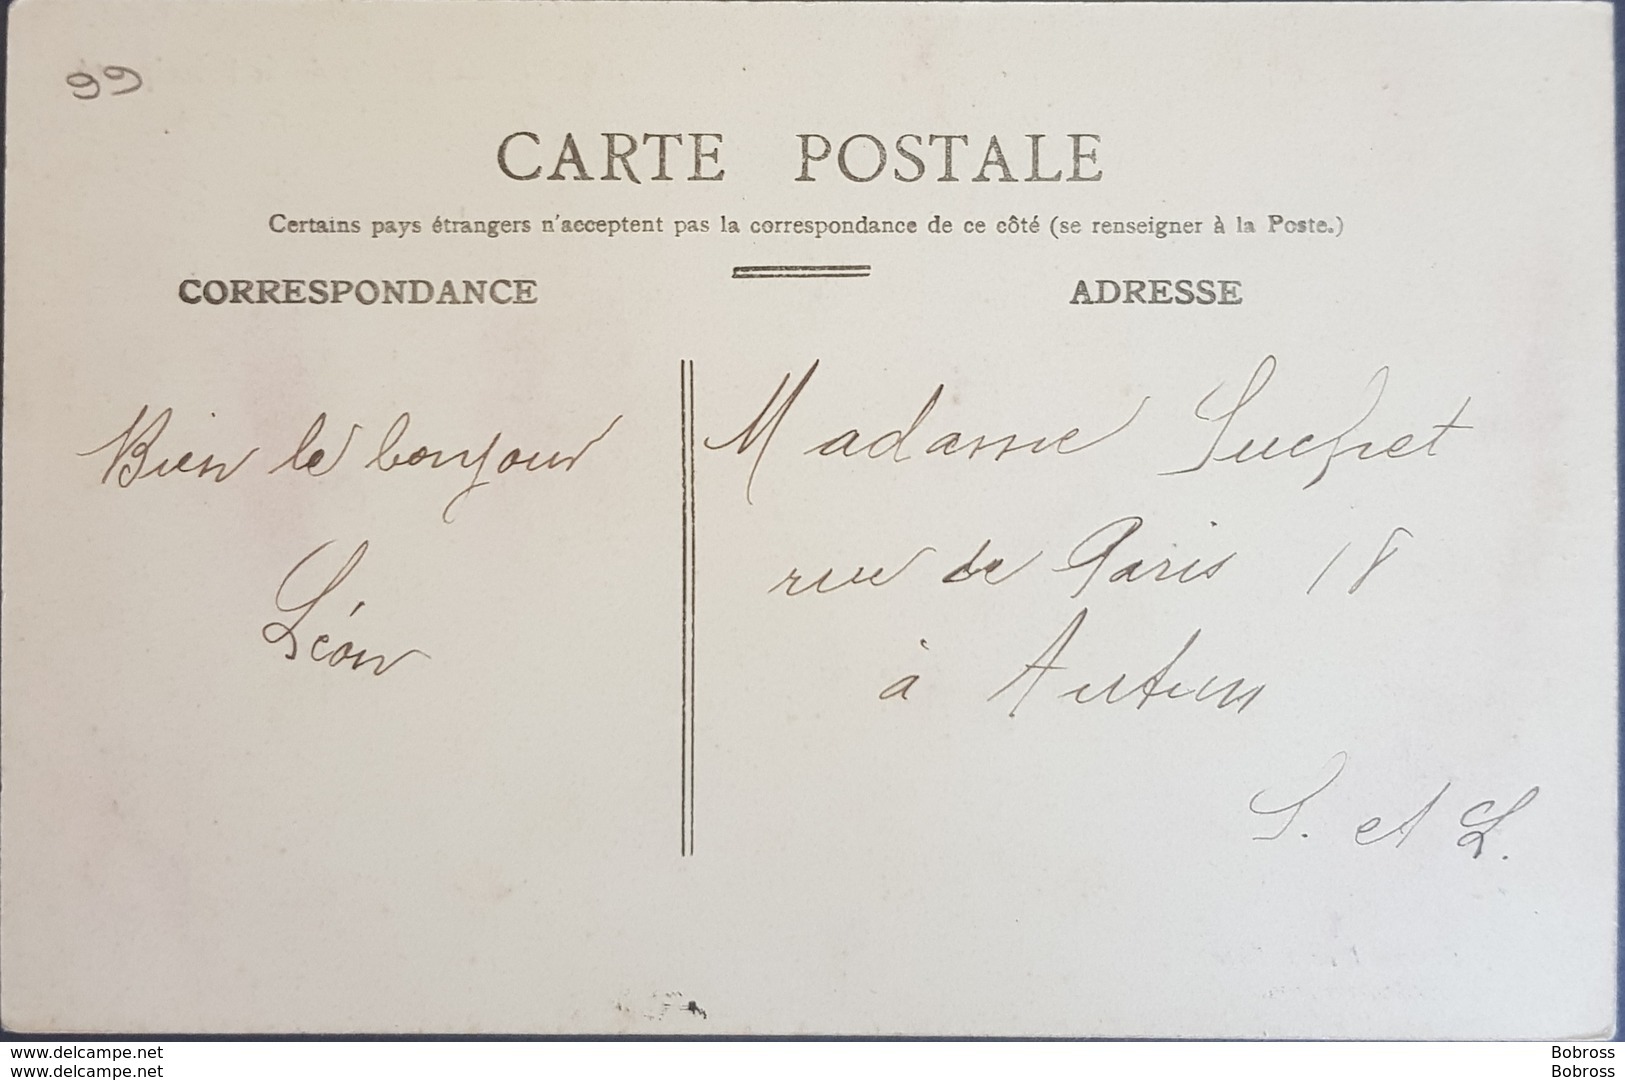 99
CARTE POSTALE
Certains pays étrangers n'acceptent pas la correspondance de ce côté (se renseigner à la Poste.)
CORRESPONDANCE
ADRESSE
Bien le bonjour
Léon
Madame Suchet
rue de Paris 18
à Autun
S. et L.
www.delcampe.net
www.delcampe.net
Bobross
Bobross